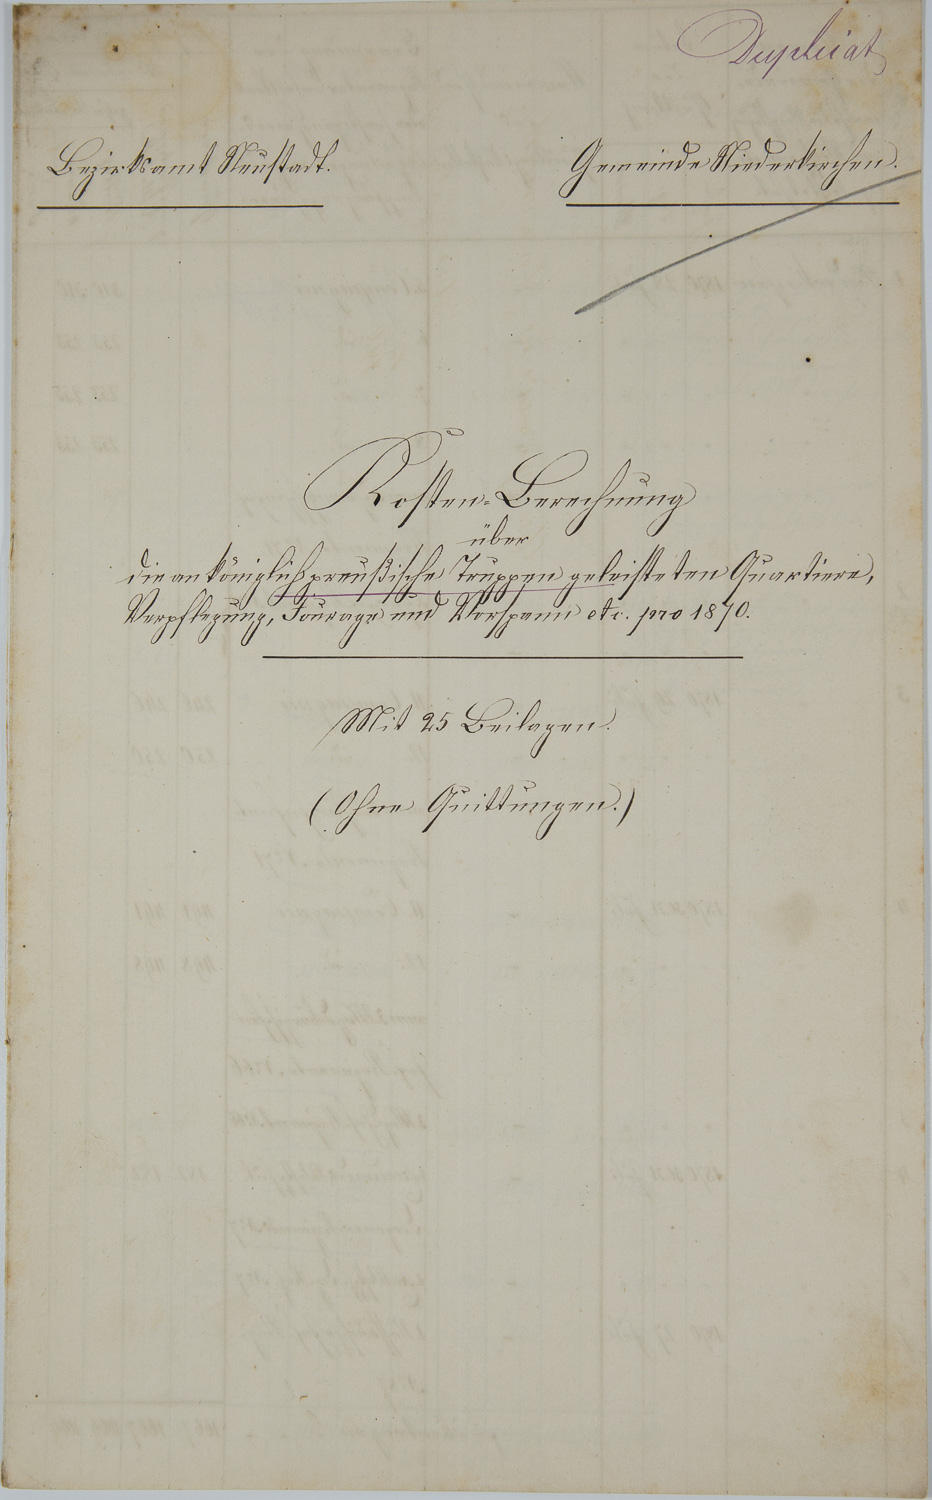 Duplicat
Bezirksamt Neustadt.
Gemeinde Niederkirchen.
Kosten-Berechnung
über
die an königlich preußische Truppen geleisteten Quartiere,
Verpflegung, Fourage und Vorspann etc. pro 1870.
Mit 25 Beilagen.
(Ohne Quittungen.)